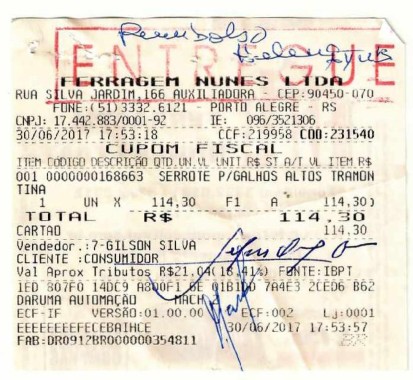 Reembolso
ENTREGUE
FERRAGEM NUNES LTDA
RUA SILVA JARDIM,166 AUXILIADORA - CEP:90450-070
FONE:(51)3332.6121 - PORTO ALEGRE - RS
CNPJ: 17.442.883/0001-92 IE: 096/3521306
30/06/2017 17:53:18 CCF:219958 COO:231540
CUPOM FISCAL
ITEM CÓDIGO DESCRIÇÃO QTD.UN.VL UNIT R$ ST A/T VL ITEM R$
001 0000000168663 SERROTE P/GALHOS ALTOS TRAMON
TINA
1 UN X 114,30 F1 A 114,30)
TOTAL R$ 114,30
CARTAO 114,30
Vendedor.:7-GILSON SILVA
CLIENTE :CONSUMIDOR
Val Aprox Tributos R$21,04(18,41%) FONTE:IBPT
DARUMA AUTOMAÇÃO MACH
ECF-IF VERSÃO:01.00.00 ECF:002 Lj:0001
EEEEEEEFECEBAIHCE 30/06/2017 17:53:57
FAB:DR0912BR000000354811 BR